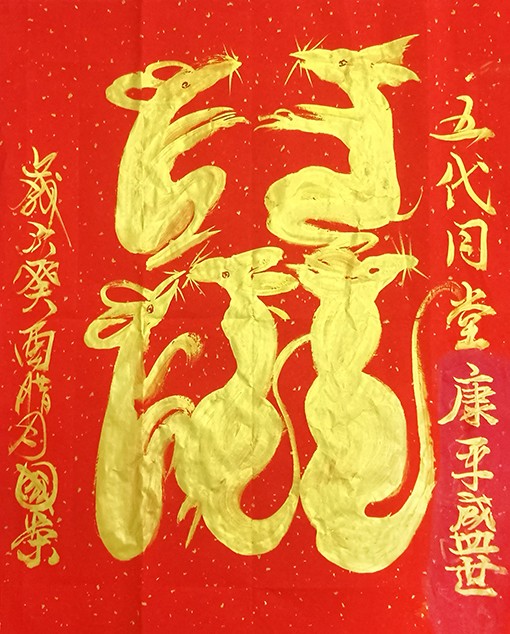 五代同堂康平盛世
鼠
歲次癸酉腊月國荣